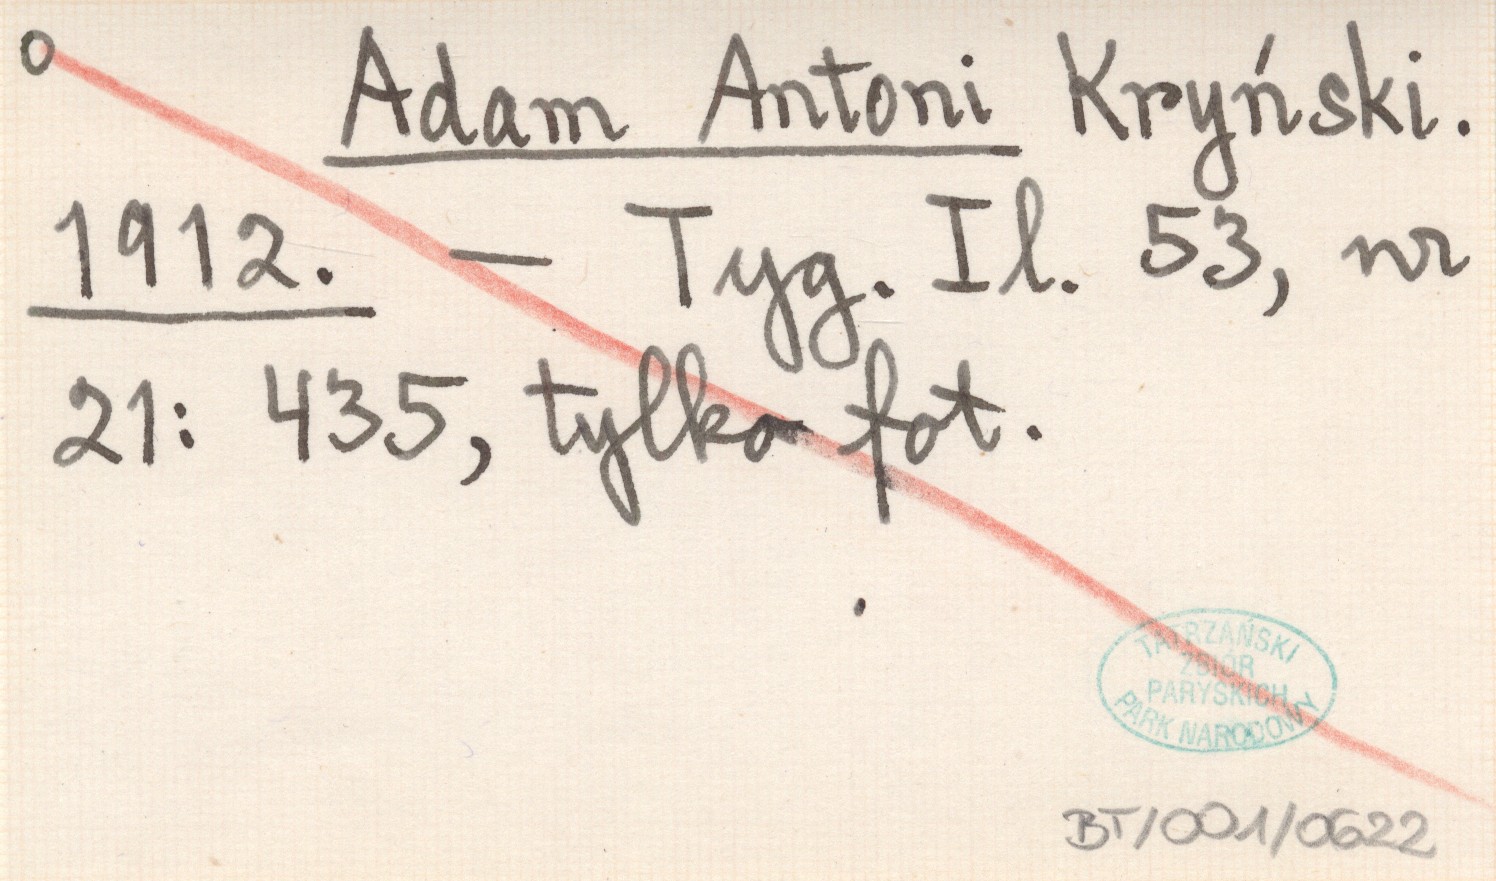 Adam Antoni Kryński.
1912. — Tyg. Il. 53, nr
21: 435, tylko fot.
TATRZAŃSKI
ZBIÓR
PARYSKICH
PARK NARODOWY
BT/001/0622